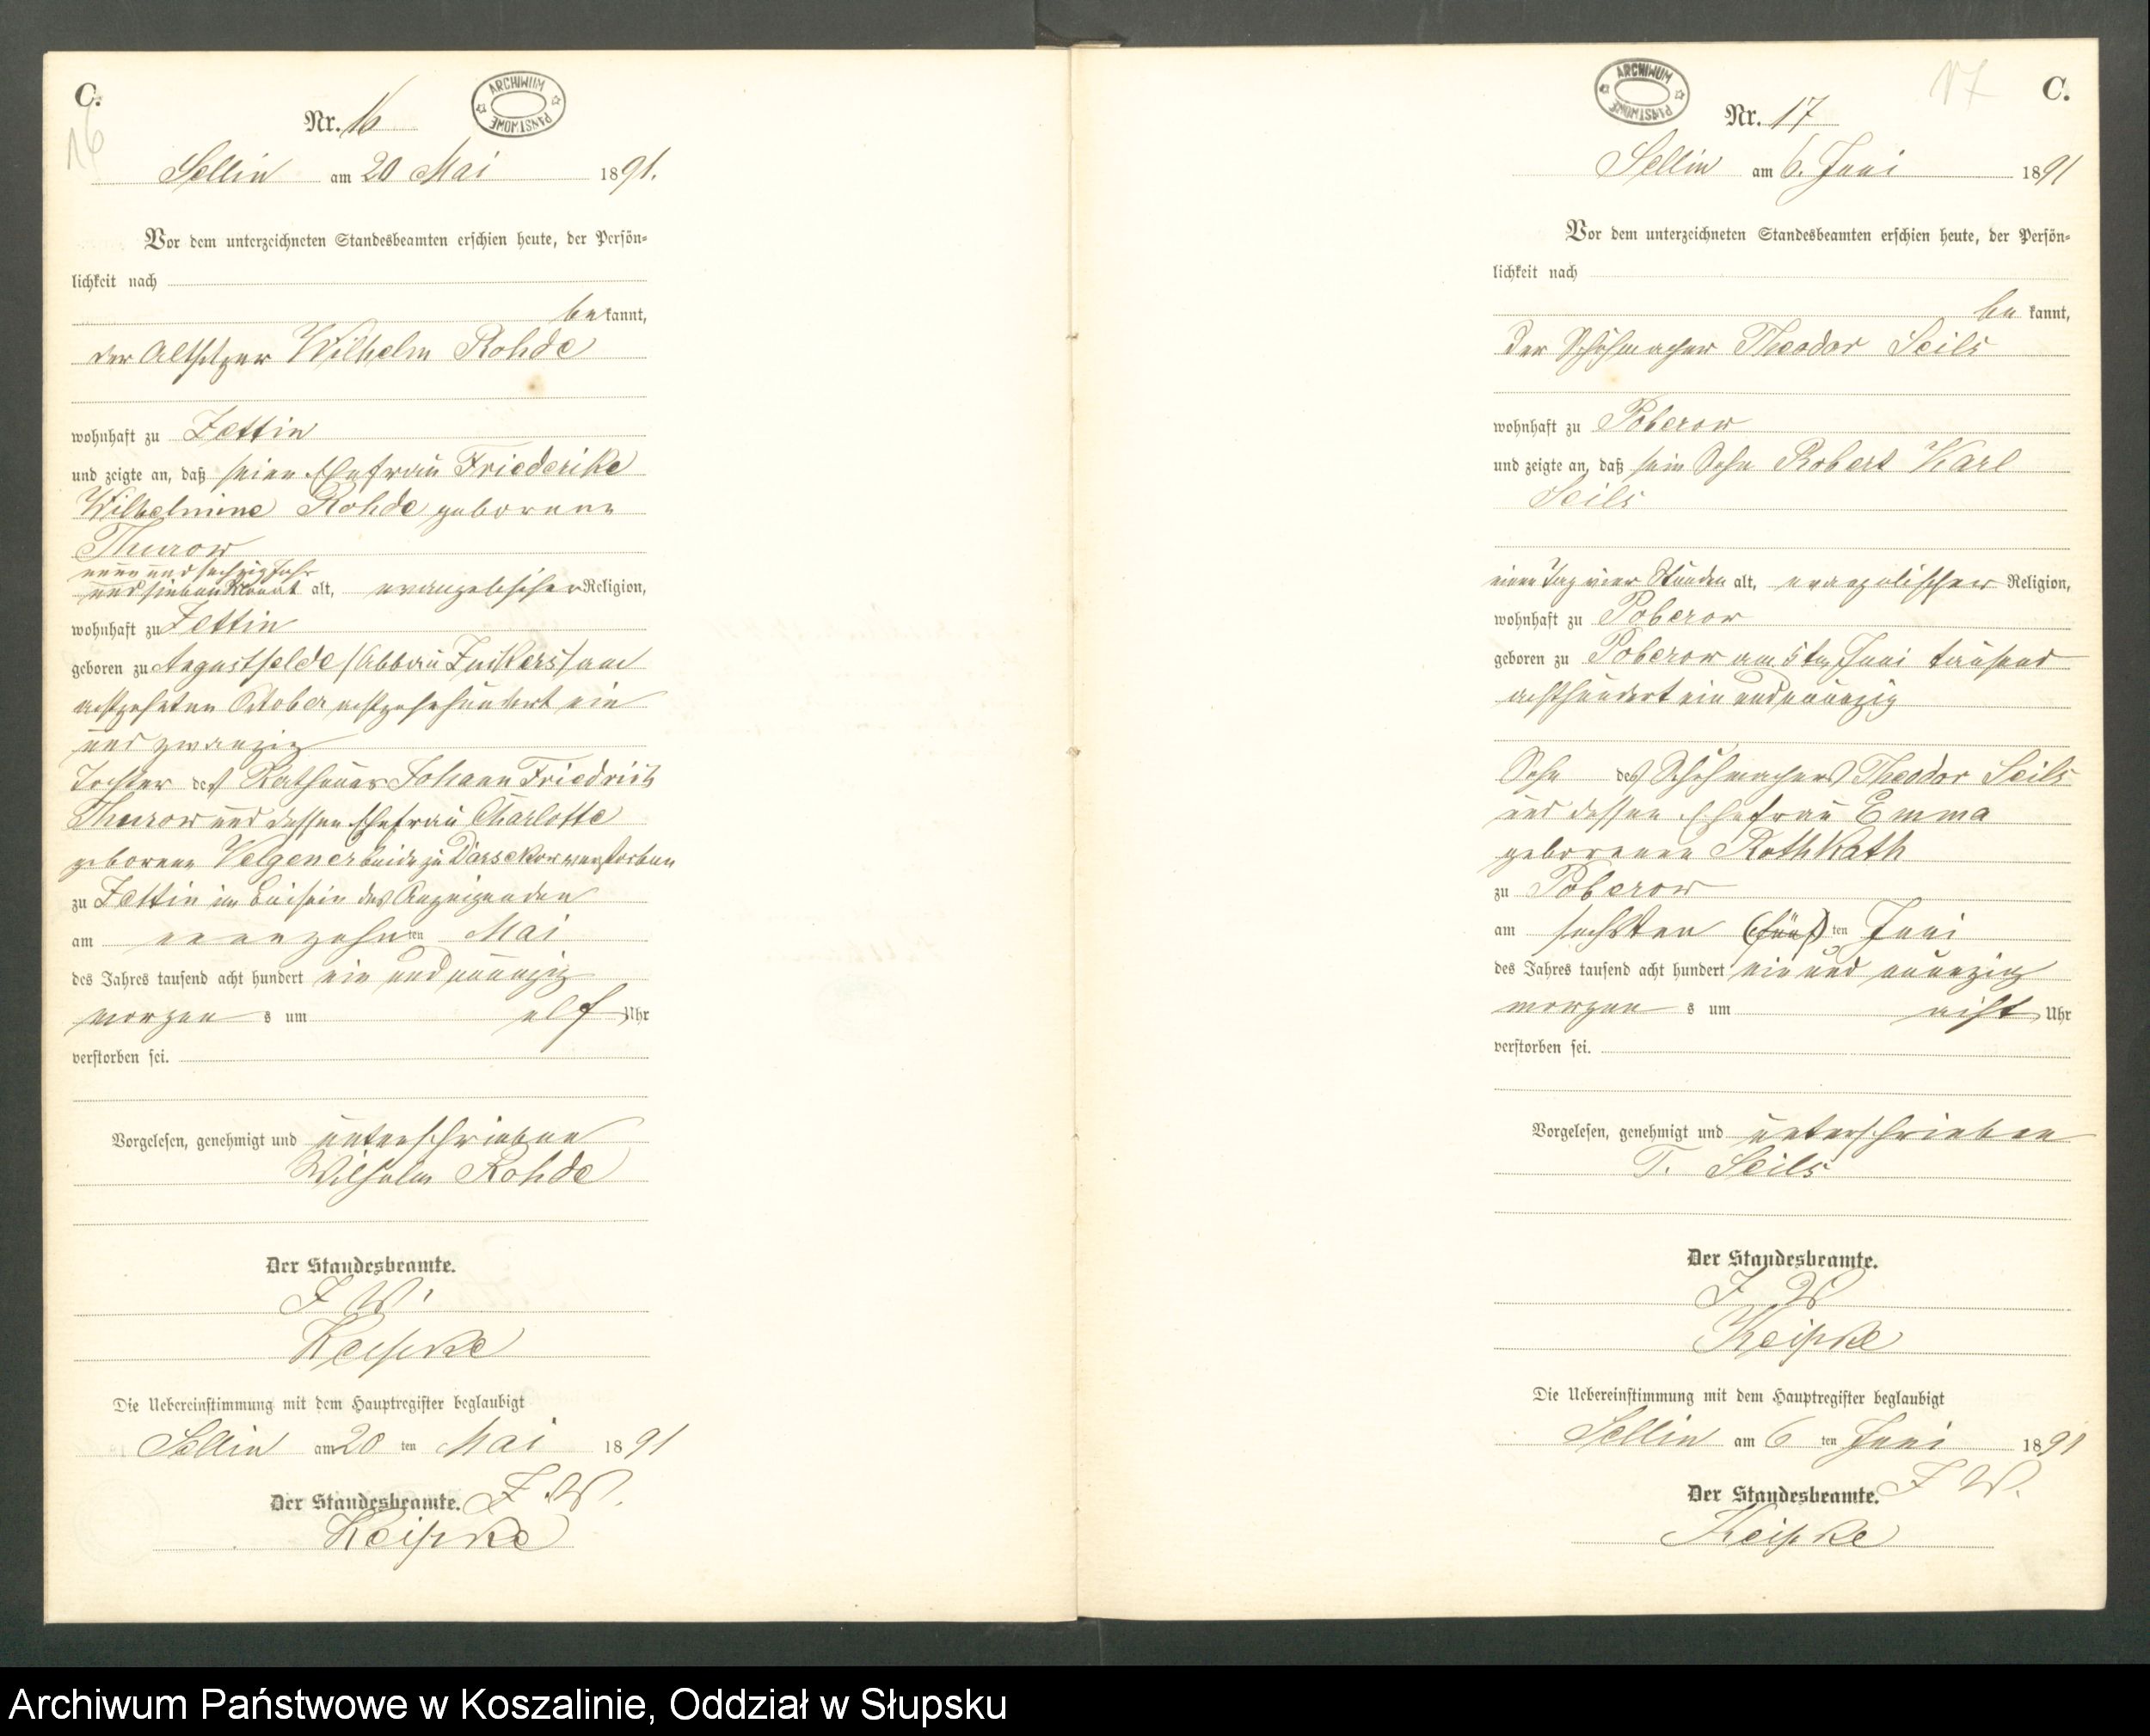 C.
16
ARCHIWUM PAŃSTWOWE
Nr. 16
Sellin am 20 Mai 1891.
Vor dem unterzeichneten Standesbeamten erschien heute, der Persön-
lichkeit nach
be kannt,
der Altsitzer Wilhelm Rohde
wohnhaft zu Zettin
und zeigte an, daß seine Ehefrau Friederike
Wilhelmine Rohde geborene
Thurow
neun und sechzig Jahr
und sieben Monat alt, evangelischer Religion,
wohnhaft zu Zettin
geboren zu Augustfelde /Abbau Zuckers/ am
achtzehnten October achtzehnhundert ein
und zwanzig
Tochter des Johann Friedrich
Thurow und dessen Ehefrau Charlotte
geborene Velgener beide zu Darsekow verstorben
zu Zettin im Beisein des Anzeigenden
am neunzehn ten Mai
des Jahres tausend acht hundert ein und neunzig
morgen s um elf Uhr
verstorben sei.
Vorgelesen, genehmigt und unterschrieben
Wilhelm Rohde
Der Standesbeamte.
I. V.
Keipke
Die Uebereinstimmung mit dem Hauptregister beglaubigt
Sellin am 20 ten Mai 1891
Der Standesbeamte. I. V.
Keipke
17
C.
ARCHIWUM PAŃSTWOWE
Nr. 17
Sellin am 6. Juni 1891
Vor dem unterzeichneten Standesbeamten erschien heute, der Persön-
lichkeit nach
be kannt,
der Schuhmacher Theodor Seils
wohnhaft zu Poberow
und zeigte an, daß sein Sohn Robert Karl
Seils
einen Tag vier Stunden alt, evangelischer Religion,
wohnhaft zu Poberow
geboren zu Poberow am 5ten Juni tausend
achthundert ein und neunzig
Sohn des Schuhmachers Theodor Seils
und dessen Ehefrau Emma
geborenen Rothkath
zu Poberow
am sechsten (fünf) ten Juni
des Jahres tausend acht hundert ein und neunzig
morgen s um acht Uhr
verstorben sei.
Vorgelesen, genehmigt und unterschrieben
T. Seils
Der Standesbeamte.
I. V.
Keipke
Die Uebereinstimmung mit dem Hauptregister beglaubigt
Sellin am 6 ten Juni 1891
Der Standesbeamte. I. V.
Keipke
Archiwum Państwowe w Koszalinie, Oddział w Słupsku